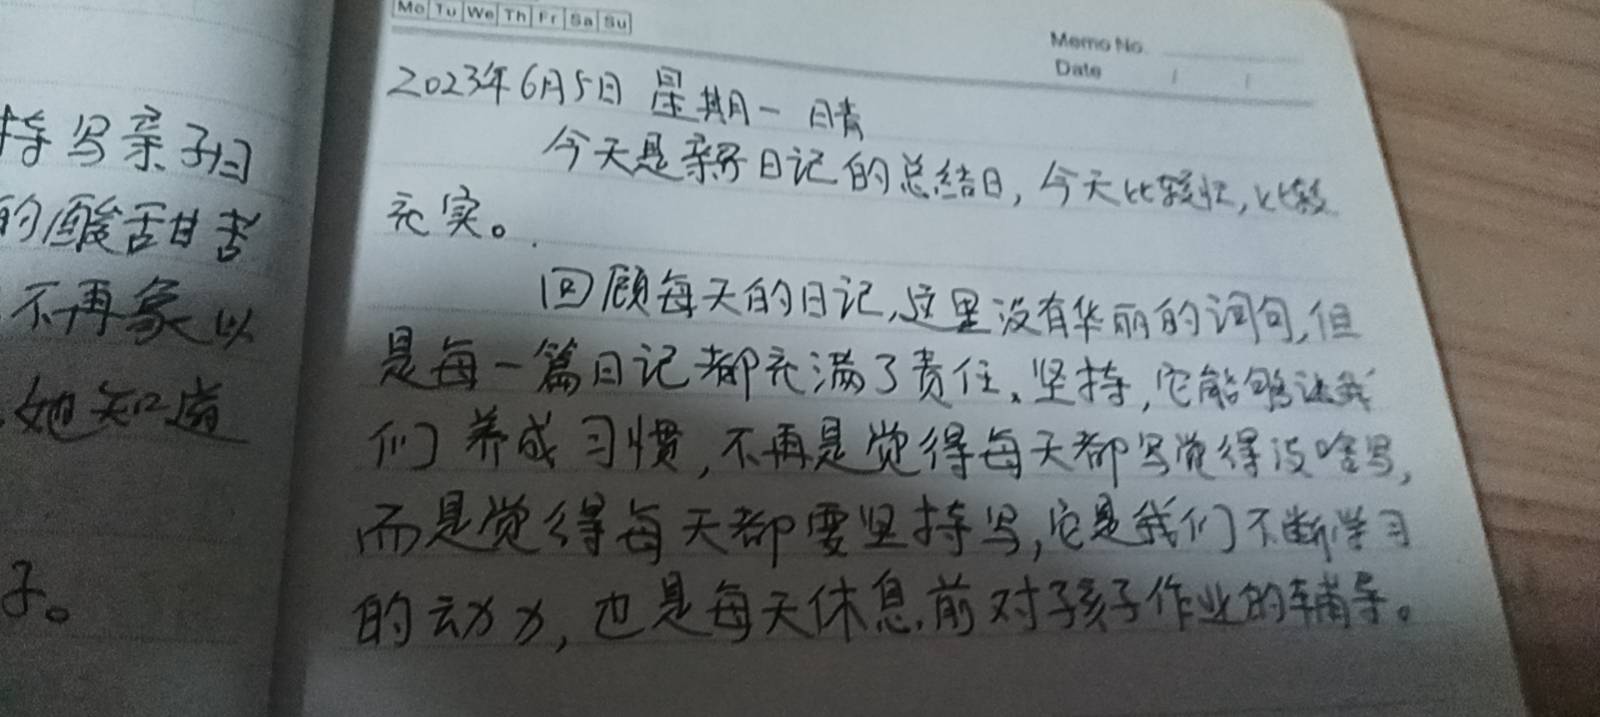 持写亲子日
的酸甜甘苦
不再象以
她知道
子。
Mo Tu We Th Fr Sa Su
Memo No.
Date / /
2023年6月5日 星期一 晴
今天是亲子日记的总结日，今天比较忙，比较
充实。
回顾每天的日记，这里没有华丽的词句，但
是每一篇日记都充满了责任、坚持，它能够让我
们养成习惯，不再是觉得每天都写觉得没啥写，
而是觉得每天都要坚持写，它是我们不断学习
的动力，也是每天休息前对孩子作业的辅导。